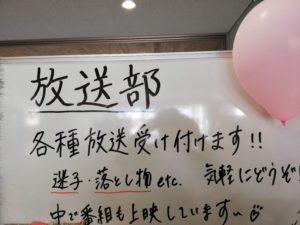 放送部
各種放送受け付けます!!
迷子・落とし物 etc. 気軽にどうぞ!
中で番組も上映しています〜